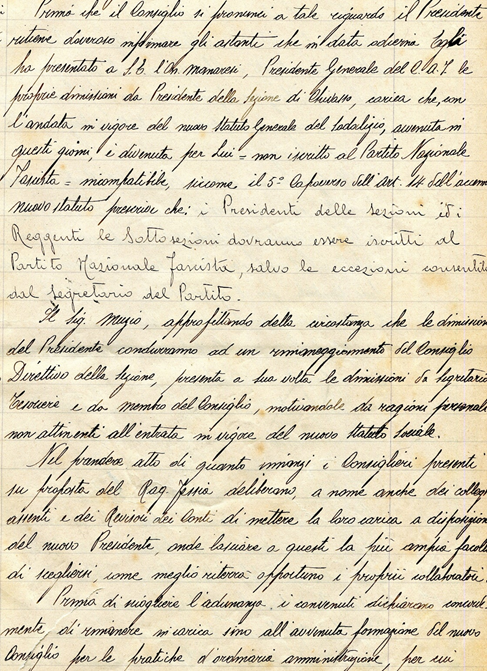 Prima che il Consiglio si pronunci a tale riguardo il Presidente
ritiene doveroso informare gli astanti che in data odierna Egli
ha presentato a S.E. l'On. Manaresi, Presidente Generale del C.A.I. le
proprie dimissioni da Presidente della Sezione di Chivasso, carica che, con
l'andata in vigore del nuovo Statuto Generale del Sodalizio, avvenuta in
questi giorni, è divenuta per Lui = non iscritto al Partito Nazionale
Fascista = incompatibile, siccome il 5° Capoverso dell'Art. 14 dell'accenn
nuovo statuto prescrive che: i Presidenti delle sezioni ed i
Reggenti le Sottosezioni dovranno essere iscritti al
Partito Nazionale Fascista, salvo le eccezioni consentite
dal Segretario del Partito.
Il Sig. Muzio, approfittando della circostanza che le dimissioni
del Presidente condurranno ad un rimaneggiamento del Consiglio
Direttivo della Sezione, presenta a sua volta le dimissioni da Segretario
Tesoriere e da membro del Consiglio motivandole da ragioni personali
non attinenti all'entrata in vigore del nuovo Statuto Sociale.
Nel prendere atto di quanto innanzi i Consiglieri presenti
su proposta del Rag. Jessia deliberano, a nome anche dei colleghi
assenti e dei Revisori dei Conti di mettere la loro carica a disposizione
del nuovo Presidente, onde lasciare a questi la più ampia facoltà
di scegliersi, come meglio riterrà opportuno i proprii collaboratori.
Prima di sciogliere l'adunanza, i convenuti dichiarano concorde
mente di rimanere in carica sino all'avvenuta formazione del nuovo
Consiglio per le pratiche d'ordinaria amministrazione, per cui